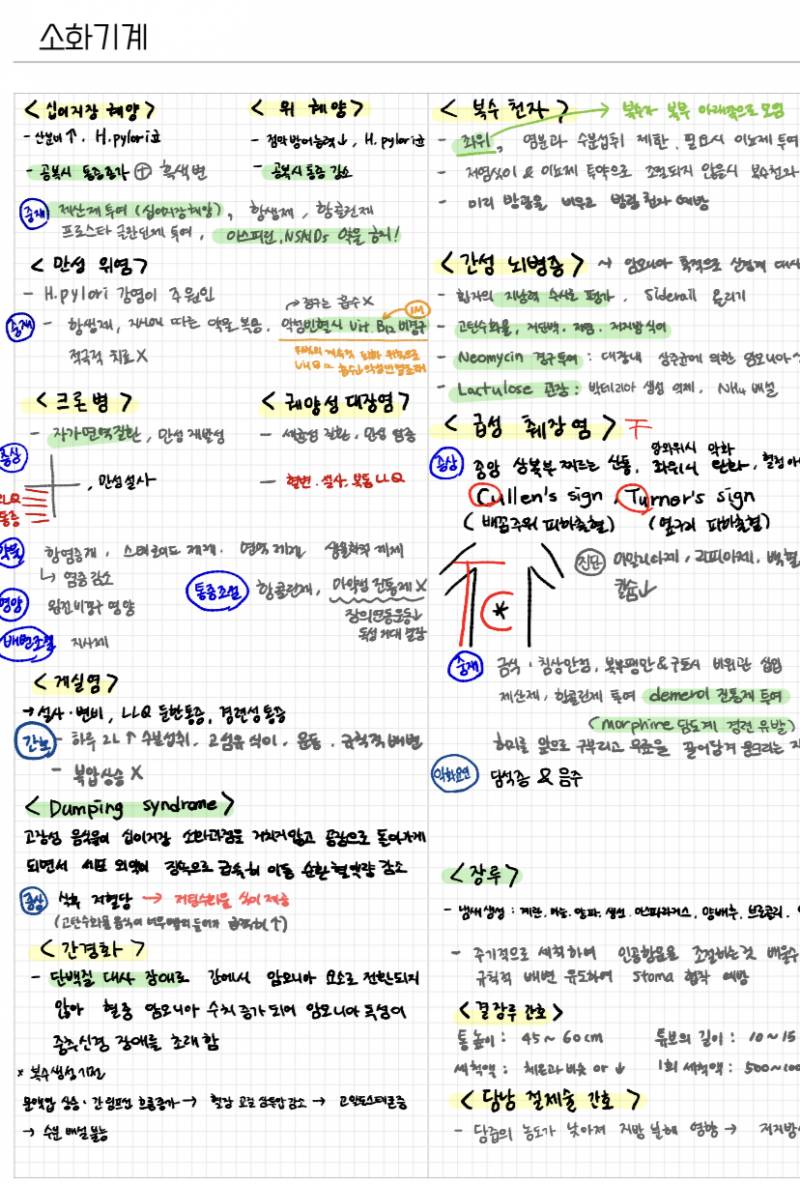 소화기계
< 십이지장 궤양 >
- 산분비↑. H.pylori균
- 공복시 통증증가 ⊕ 흑색변
< 위 궤양 >
- 점막방어능력↓, H.pylori균
- 공복시 통증 감소
중재 제산제 투여 (십이지장궤양), 항생제, 항콜린제
프로스타글란딘제 투여, 아스피린, NSAIDs 약물 금지!
< 만성 위염 >
- H.pylori 감염이 주원인
중재 - 항생제, 지시에 따른 약물 복용. 악성빈혈시 Vit B12 비경구
적극적 치료 X
경구는 흡수 X
IM
< 크론병 >
- 자가면역질환, 만성 재발성
증상
, 만성설사
RLQ
통증
< 궤양성 대장염 >
- 세균성 질환, 만성 염증
- 혈변. 설사. 복통 LLQ
약물 항염증제, 스테로이드 제제. 면역 제제 생물학적 제제
↳ 염증 감소
영양 완전비경구 영양
배변조절 지사제
통증조절 항콜린제, 마약성 진통제 X
장의 연동운동↓
독성 거대 결장
< 게실염 >
→ 설사 · 변비, LLQ 둔한통증, 경련성 통증
간호 - 하루 2L↑ 수분섭취, 고섬유 식이, 운동. 규칙적 배변
- 복압상승 X
< Dumping syndrome >
고장성 음식물이 십이지장 소화과정을 거치지않고 공장으로 들어가게
되면서 세포 외액이 장속으로 급속히 이동 순환혈액량 감소
증상 식후 저혈당 → 저탄수화물 식이 제공
< 간경화 >
- 단백질 대사 장애로 간에서 암모니아 요소로 전환되지
않아 혈중 암모니아 수치 증가되어 암모니아 독성이
중추신경 장애를 초래함
* 복수생성기전
문맥압 상승 · 간 림프선 흐름증가 → 혈장 교질 삼투압 감소 → 고알도스테론증
→ 수분 배설 불능
< 복수 천자 > → 복수가 복부 아래쪽으로 모임
- 좌위, 염분과 수분섭취 제한. 필요시 이뇨제 투여
- 저염식이 & 이뇨제 투약으로 조절되지 않을시 복수천자
- 미리 방광을 비우고 방광 천자 예방
< 간성 뇌병증 > ~ 암모니아 축적으로 신경계 대사
- 환자의 지남력 수시로 평가. Siderail 올리기
- 고탄수화물, 저단백. 저염. 저지방식이
- Neomycin 경구투여 : 대장내 상주균에 의한 암모니아
- Lactulose 관장 : 박테리아 생성 억제. NH4 배설
< 급성 췌장염 >
증상 중앙 상복부 찌르는 산통, 앙와위시 악화 좌위시 완화,
Cullen's sign, Turner's sign
(배꼽주위 피하출혈) (옆구리 피하출혈)
진단 아밀라아제, 리파아제, 백혈
칼슘↓
중재 금식 · 침상안정, 복부팽만&구토시 비위관 삽입
제산제, 항콜린제 투여 demerol 진통제 투여
(morphine 담도계 경련 유발)
허리를 앞으로 구부리고 무릎을 끌어당겨 웅크리는
악화요인 담석증 & 음주
< 장루 >
- 냄새생성 : 계란. 마늘. 양파. 생선. 아스파라거스, 양배추, 브로콜리.
- 주기적으로 세척하여 인공항문을 조절하는것 배울수
규칙적 배변 유도하여 stoma 협착 예방
< 결장루 간호 >
통높이 : 45~60cm 튜브의 길이 : 10~15
세척액 : 체온과 비슷 or ↓ 1회 세척액 : 500~100
< 담낭 절제술 간호 >
- 담즙의 농도가 낮아져 지방 분해 영향 → 저지방